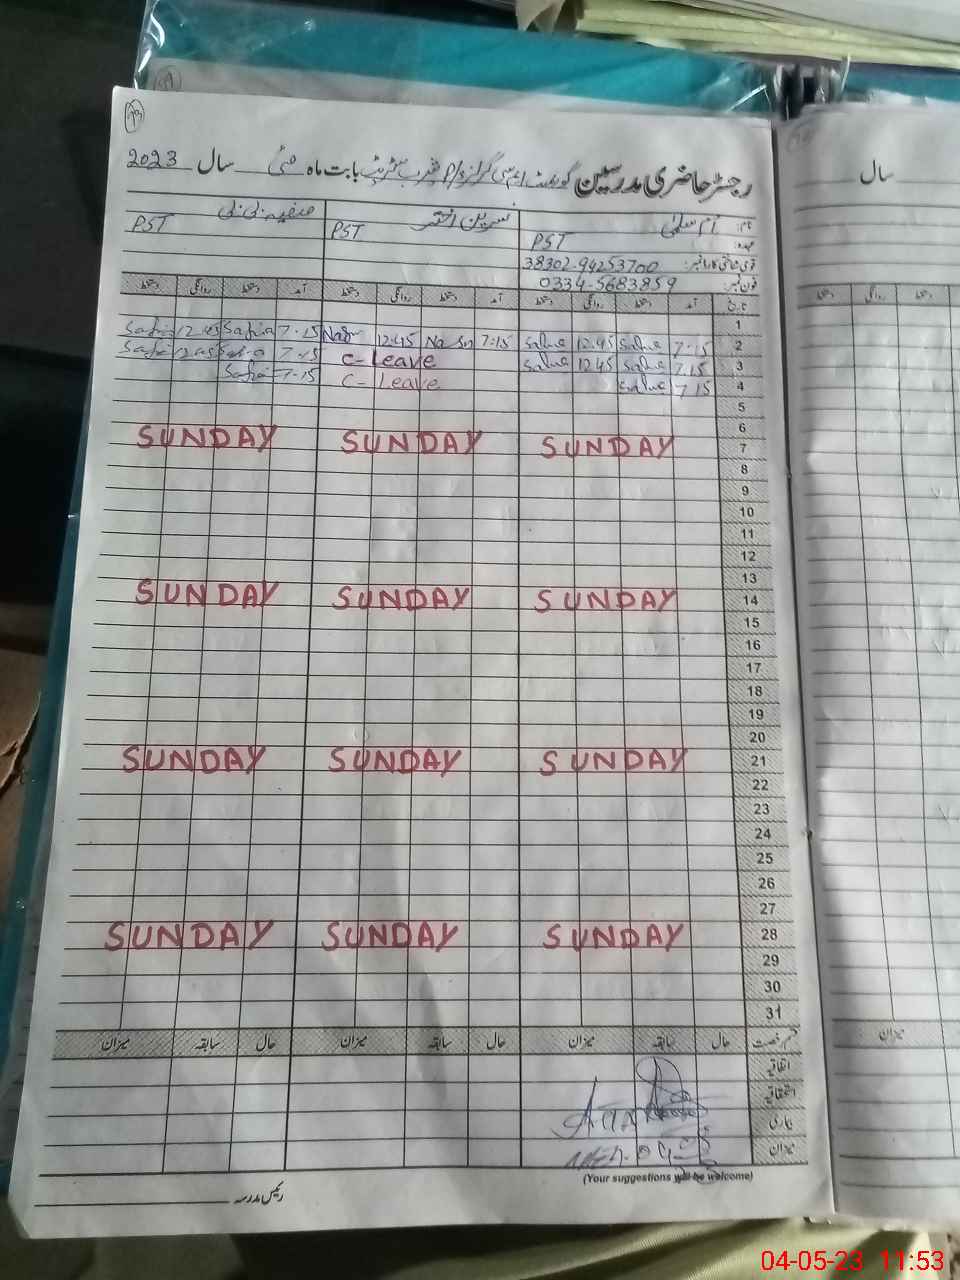 رجسٹر حاضری مدرسین گورنمنٹ ایم سی گرلز P/ بابت ماہ مئی سال 2023
سال
نام: ام سلمٰی نسرین اختر صفیہ بی بی
عہدہ: PST PST PST
قومی شناختی کارڈ نمبر: 38302-94253700
فون نمبر: 0334-5683859
تاریخ آمد دستخط روانگی دستخط آمد دستخط روانگی دستخط آمد دستخط روانگی دستخط
دستخط روانگی دستخط
1
2 7.15 Salma 12.45 Salma 7.15 Nasn 12.45 Nasn 7.15 Safia 12.45 Safia
3 7.15 Salma 12.45 Salma C-Leave 7.15 Safia 12.45 Safia
4 7.15 Salma C-Leave 7.15 Safia
5
6
7 SUNDAY SUNDAY SUNDAY
8
9
10
11
12
13
14 SUNDAY SUNDAY SUNDAY
15
16
17
18
19
20
21 SUNDAY SUNDAY SUNDAY
22
23
24
25
26
27
28 SUNDAY SUNDAY SUNDAY
29
30
31
قسم رخصت حال سابقہ میزان حال سابقہ میزان حال سابقہ میزان
میزان
اتفاقیہ
استحقاقیہ
بیماری
میزان
(Your suggestions will be welcome)
رئیس مدرسہ
04-05-23 11:53